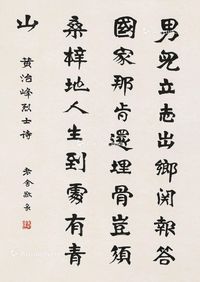 男兒立志出鄉関報答
國家那肯還埋骨豈須
桑梓地人生到處有青
山
黄治峰烈士诗
老舍敬录